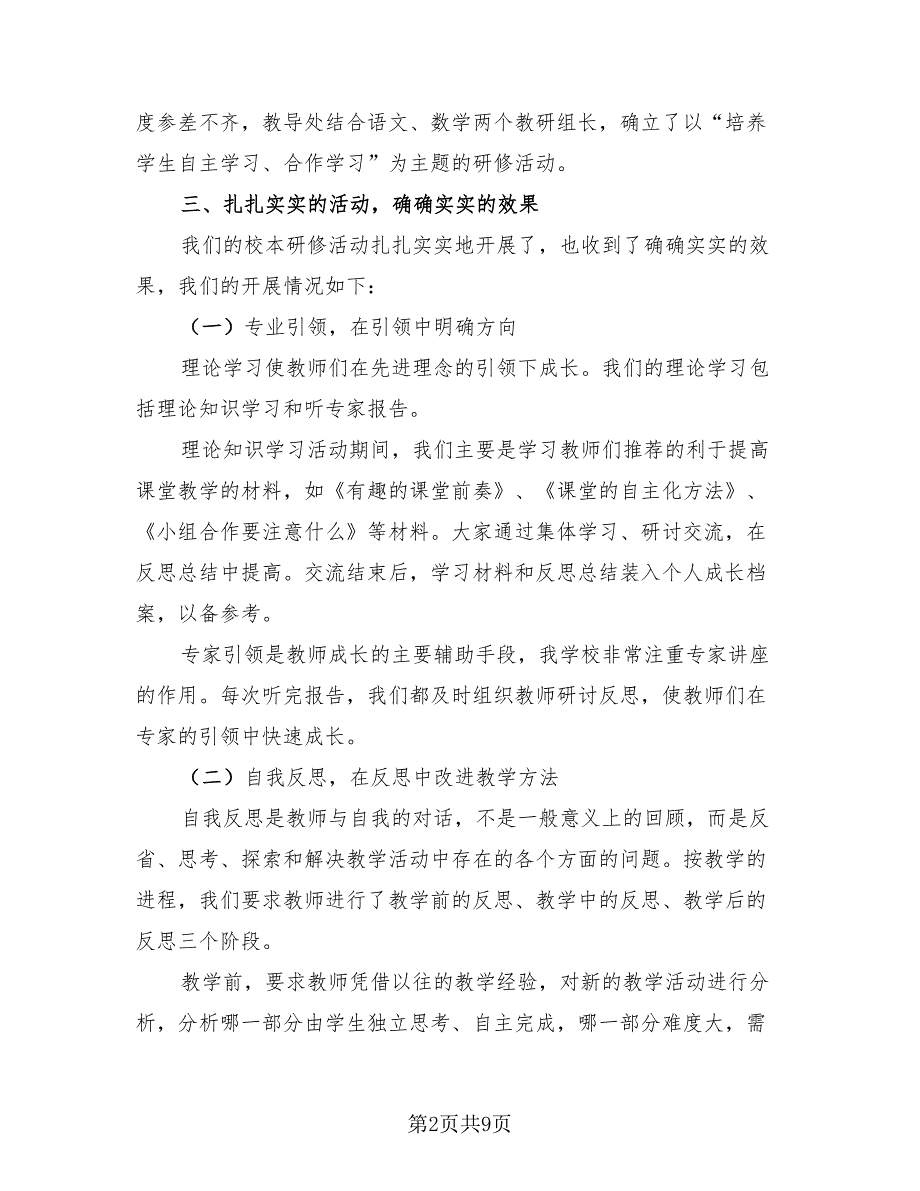 度参差不齐，教导处结合语文、数学两个教研组长，确立了以“培养
学生自主学习、合作学习”为主题的研修活动。
三、扎扎实实的活动，确确实实的效果
我们的校本研修活动扎扎实实地开展了，也收到了确确实实的效
果，我们的开展情况如下：
（一）专业引领，在引领中明确方向
理论学习使教师们在先进理念的引领下成长。我们的理论学习包
括理论知识学习和听专家报告。
理论知识学习活动期间，我们主要是学习教师们推荐的利于提高
课堂教学的材料，如《有趣的课堂前奏》、《课堂的自主化方法》、
《小组合作要注意什么》等材料。大家通过集体学习、研讨交流，在
反思总结中提高。交流结束后，学习材料和反思总结装入个人成长档
案，以备参考。
专家引领是教师成长的主要辅助手段，我学校非常注重专家讲座
的作用。每次听完报告，我们都及时组织教师研讨反思，使教师们在
专家的引领中快速成长。
（二）自我反思，在反思中改进教学方法
自我反思是教师与自我的对话，不是一般意义上的回顾，而是反
省、思考、探索和解决教学活动中存在的各个方面的问题。按教学的
进程，我们要求教师进行了教学前的反思、教学中的反思、教学后的
反思三个阶段。
教学前，要求教师凭借以往的教学经验，对新的教学活动进行分
析，分析哪一部分由学生独立思考、自主完成，哪一部分难度大，需
第2页共9页